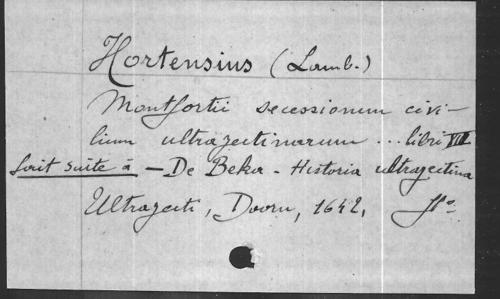 Hortensius (Lamb.)
Montfortii secessionum civi-
lium ultrajectinarum ... libri VII
fait suite à — De Beka - Historia ultrajectina
Ultrajecti, Doorn, 1642, fº